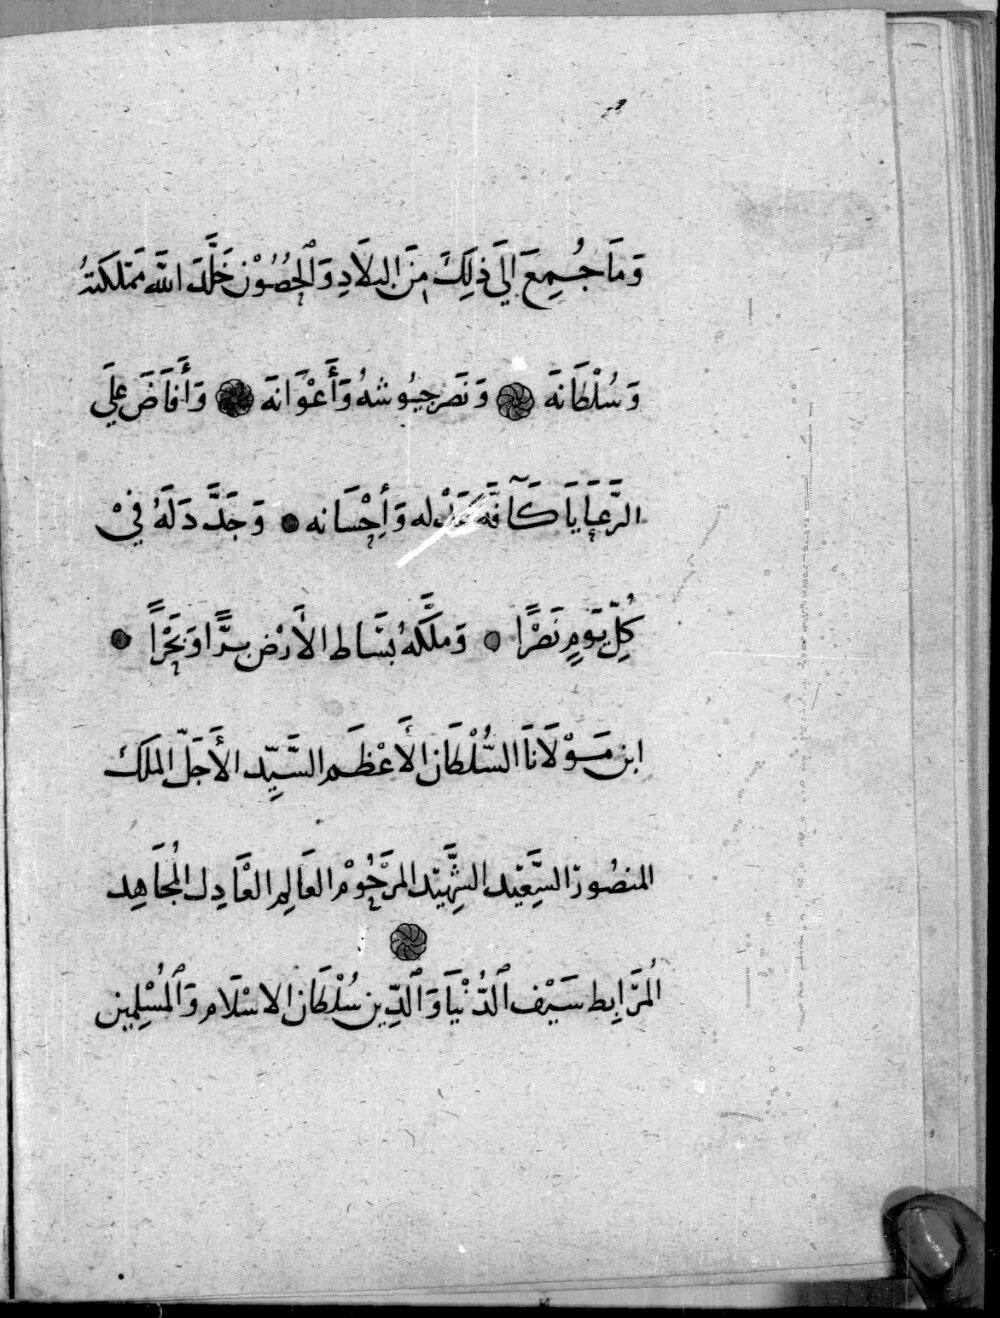 وَمَا جُمِعَ إِلَيَ ذلِكَ مِنَ البِلَادِ وَٱلحُصُوْن خَلَّدَ اللَّهَ مَملَكَتهُ
وَسُلْطَانَه وَنَصَر جيُوشهُ وَأَعْوَانَه وَأَفَاضَ عَلَي
الرَّعَايَا كَآفَّة عَدْله وَإِحْسَانه وَجَدَّدَ لَهُ فِيْ
كُلِّ يَوْمٍ نَصْرًا وَمَلَّكَهُ بسَاط الأَرْض بَرًّا وَبَحْرًا
ابن مَوْلَانَا السُّلْطَان الأَعْظَم السَّيِّد الأَجَلّ الملك
المنصُور السَّعِيْد الشَّهِيْد المَرْحُوْم العَالِم العَادِل المُجَاهِد
المُرَابِط سَيْف ٱلدُّنْيَا وَٱلدِّين سُلْطَان الاسْلَام وَٱلمُسْلِمين